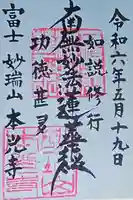 令和六年五月十九日
如説修行
南無妙法蓮華経
功徳甚多
富士 妙瑞山 本光寺